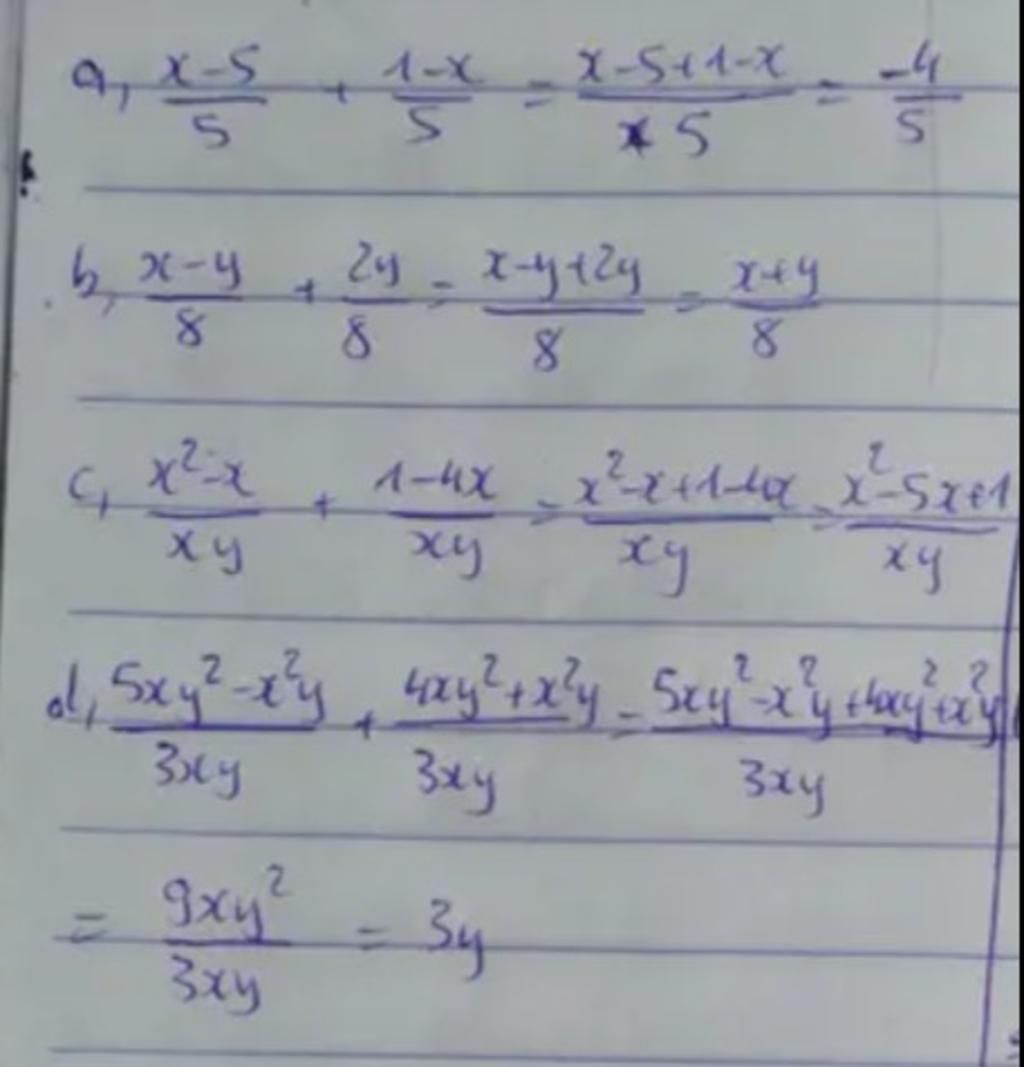 a, x-5/5 + 1-x/5 = x-5+1-x/5 = -4/5
b, x-y/8 + 2y/8 = x-y+2y/8 = x+y/8
c, x²-x/xy + 1-4x/xy = x²-x+1-4x/xy = x²-5x+1/xy
d, 5xy²-x²y/3xy + 4xy²+x²y/3xy = 5xy²-x²y+4xy²+x²y/3xy
= 9xy²/3xy = 3y